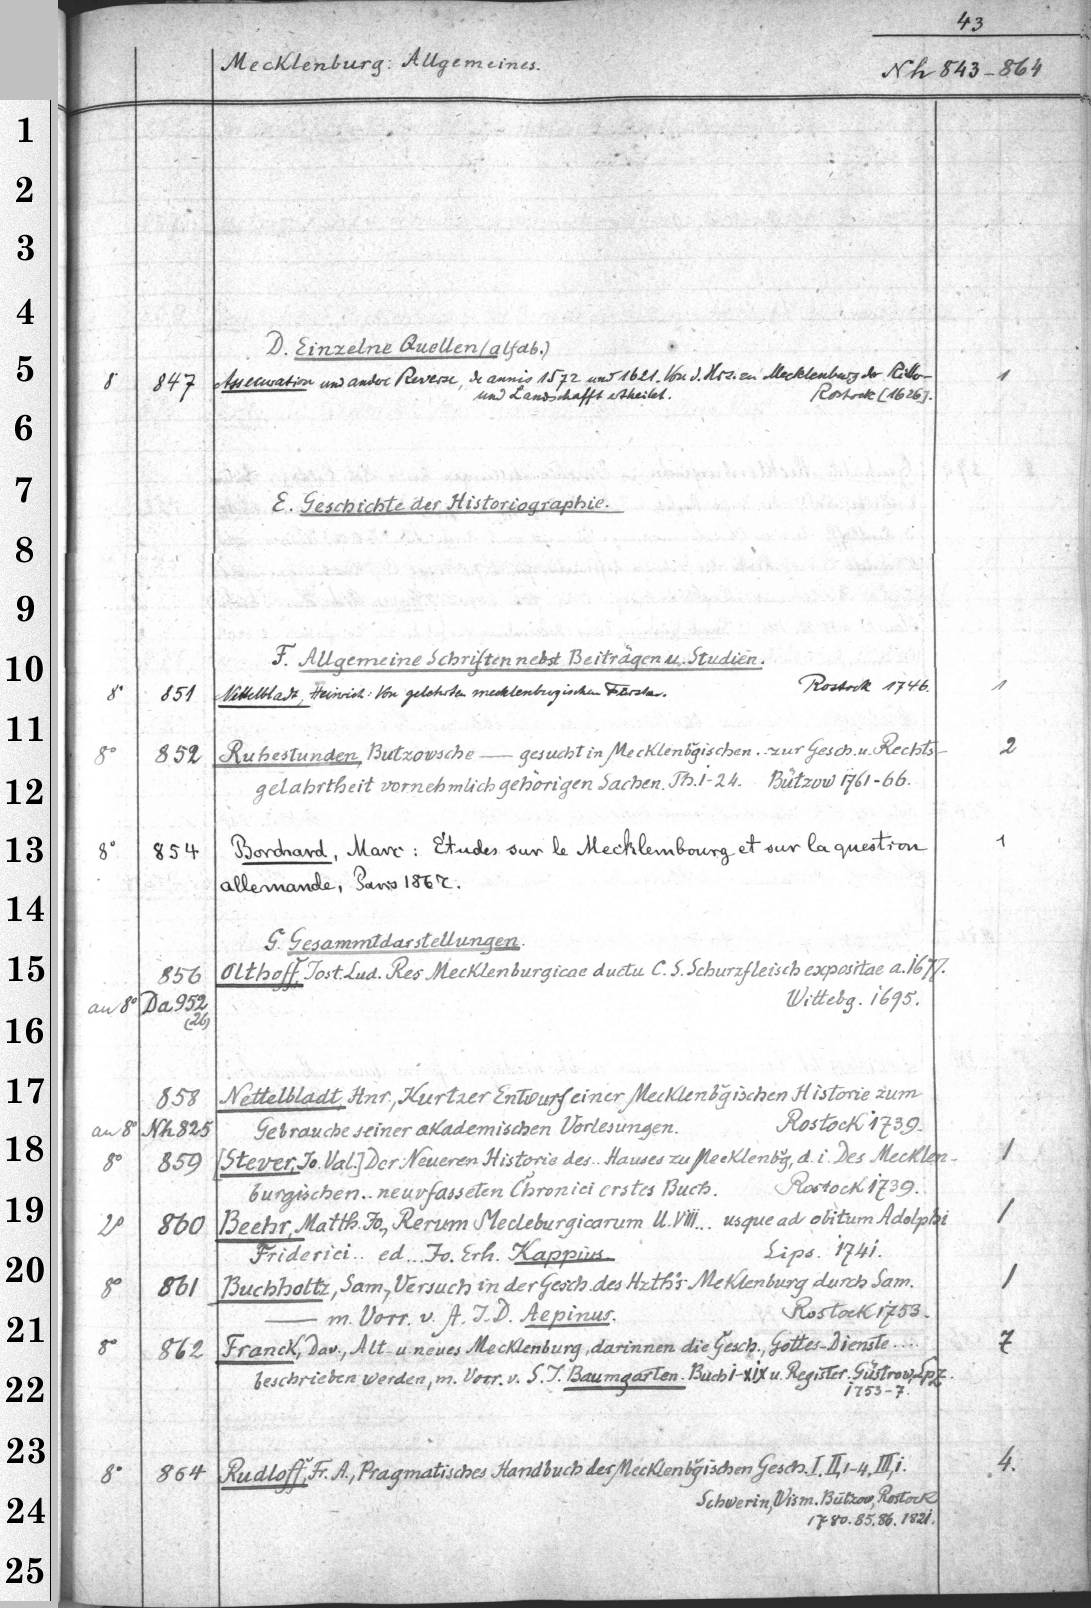 43
Mecklenburg: Allgemeines.
Nh 843-864
1
2
3
4
D. Einzelne Quellen (alfab.)
5
8° 847 Assecuration und andere Reverse, de annis 1572 und 1621. Von d. Hrz. zu Mecklenburg der Ritter- 1
und Landschafft ertheilet. Rostock [1626].
6
7
E. Geschichte der Historiographie.
8
9
10
F. Allgemeine Schriften nebst Beiträgen u. Studien.
8° 851 Nettelbladt, Heinrich: Von gelehrten mecklenburgischen Fürsten. Rostock 1746. 1
11
8° 852 Ruhestunden, Butzowsche — gesucht in Mecklenbgischen.. zur Gesch. u. Rechts- 2
12
gelahrtheit vornehmlich gehörigen Sachen. Th. 1-24. Bützow 1761-66.
13
8° 854 Borchard, Marc: Etudes sur le Mecklembourg et sur la question 1
allemande, Paris 1867.
14
G. Gesammtdarstellungen.
15
856 Olthoff, Jost. Lud. Res Mecklenburgicae ductu C. S. Schurzfleisch expositae a. 1677.
an 8° Da 952 Wittebg. 1695.
(26)
16
17
858 Nettelbladt, Hnr., Kurtzer Entwurf einer Mecklenbgischen Historie zum
an 8° Nh 825 Gebrauche seiner akademischen Vorlesungen. Rostock 1739.
18
8° 859 [Stever, Jo. Val.] Der Neueren Historie des.. Hauses zu Mecklenbg, d. i. Des Mecklen- 1
burgischen.. neuverfasseten Chronici erstes Buch. Rostock 1739.
19
2° 860 Beehr, Matth. Jo., Rerum Mecleburgicarum ll. VIII... usque ad obitum Adolphi 1
Friderici.. ed... Jo. Erh. Kappius. Lips. 1741.
20
8° 861 Buchholtz, Sam., Versuch in der Gesch. des Hzth's Meklenburg durch Sam. 1
— m. Vorr. v. A. J. D. Aepinus. Rostock 1753.
21
8° 862 Franck, Dav., Alt- u. neues Mecklenburg, darinnen die Gesch., Gottes-Dienste.... 7
22
beschrieben werden, m. Vorr. v. S. J. Baumgarten. Buch I-XIX u. Register. Güstrow, Lpz.
1753-7.
23
8° 864 Rudloff, Fr. A., Pragmatisches Handbuch der Mecklenbgischen Gesch. I. II, 1-4. III, 1. 4.
24
Schwerin, Wism. Bützow, Rostock
1780. 85. 86. 1821.
25